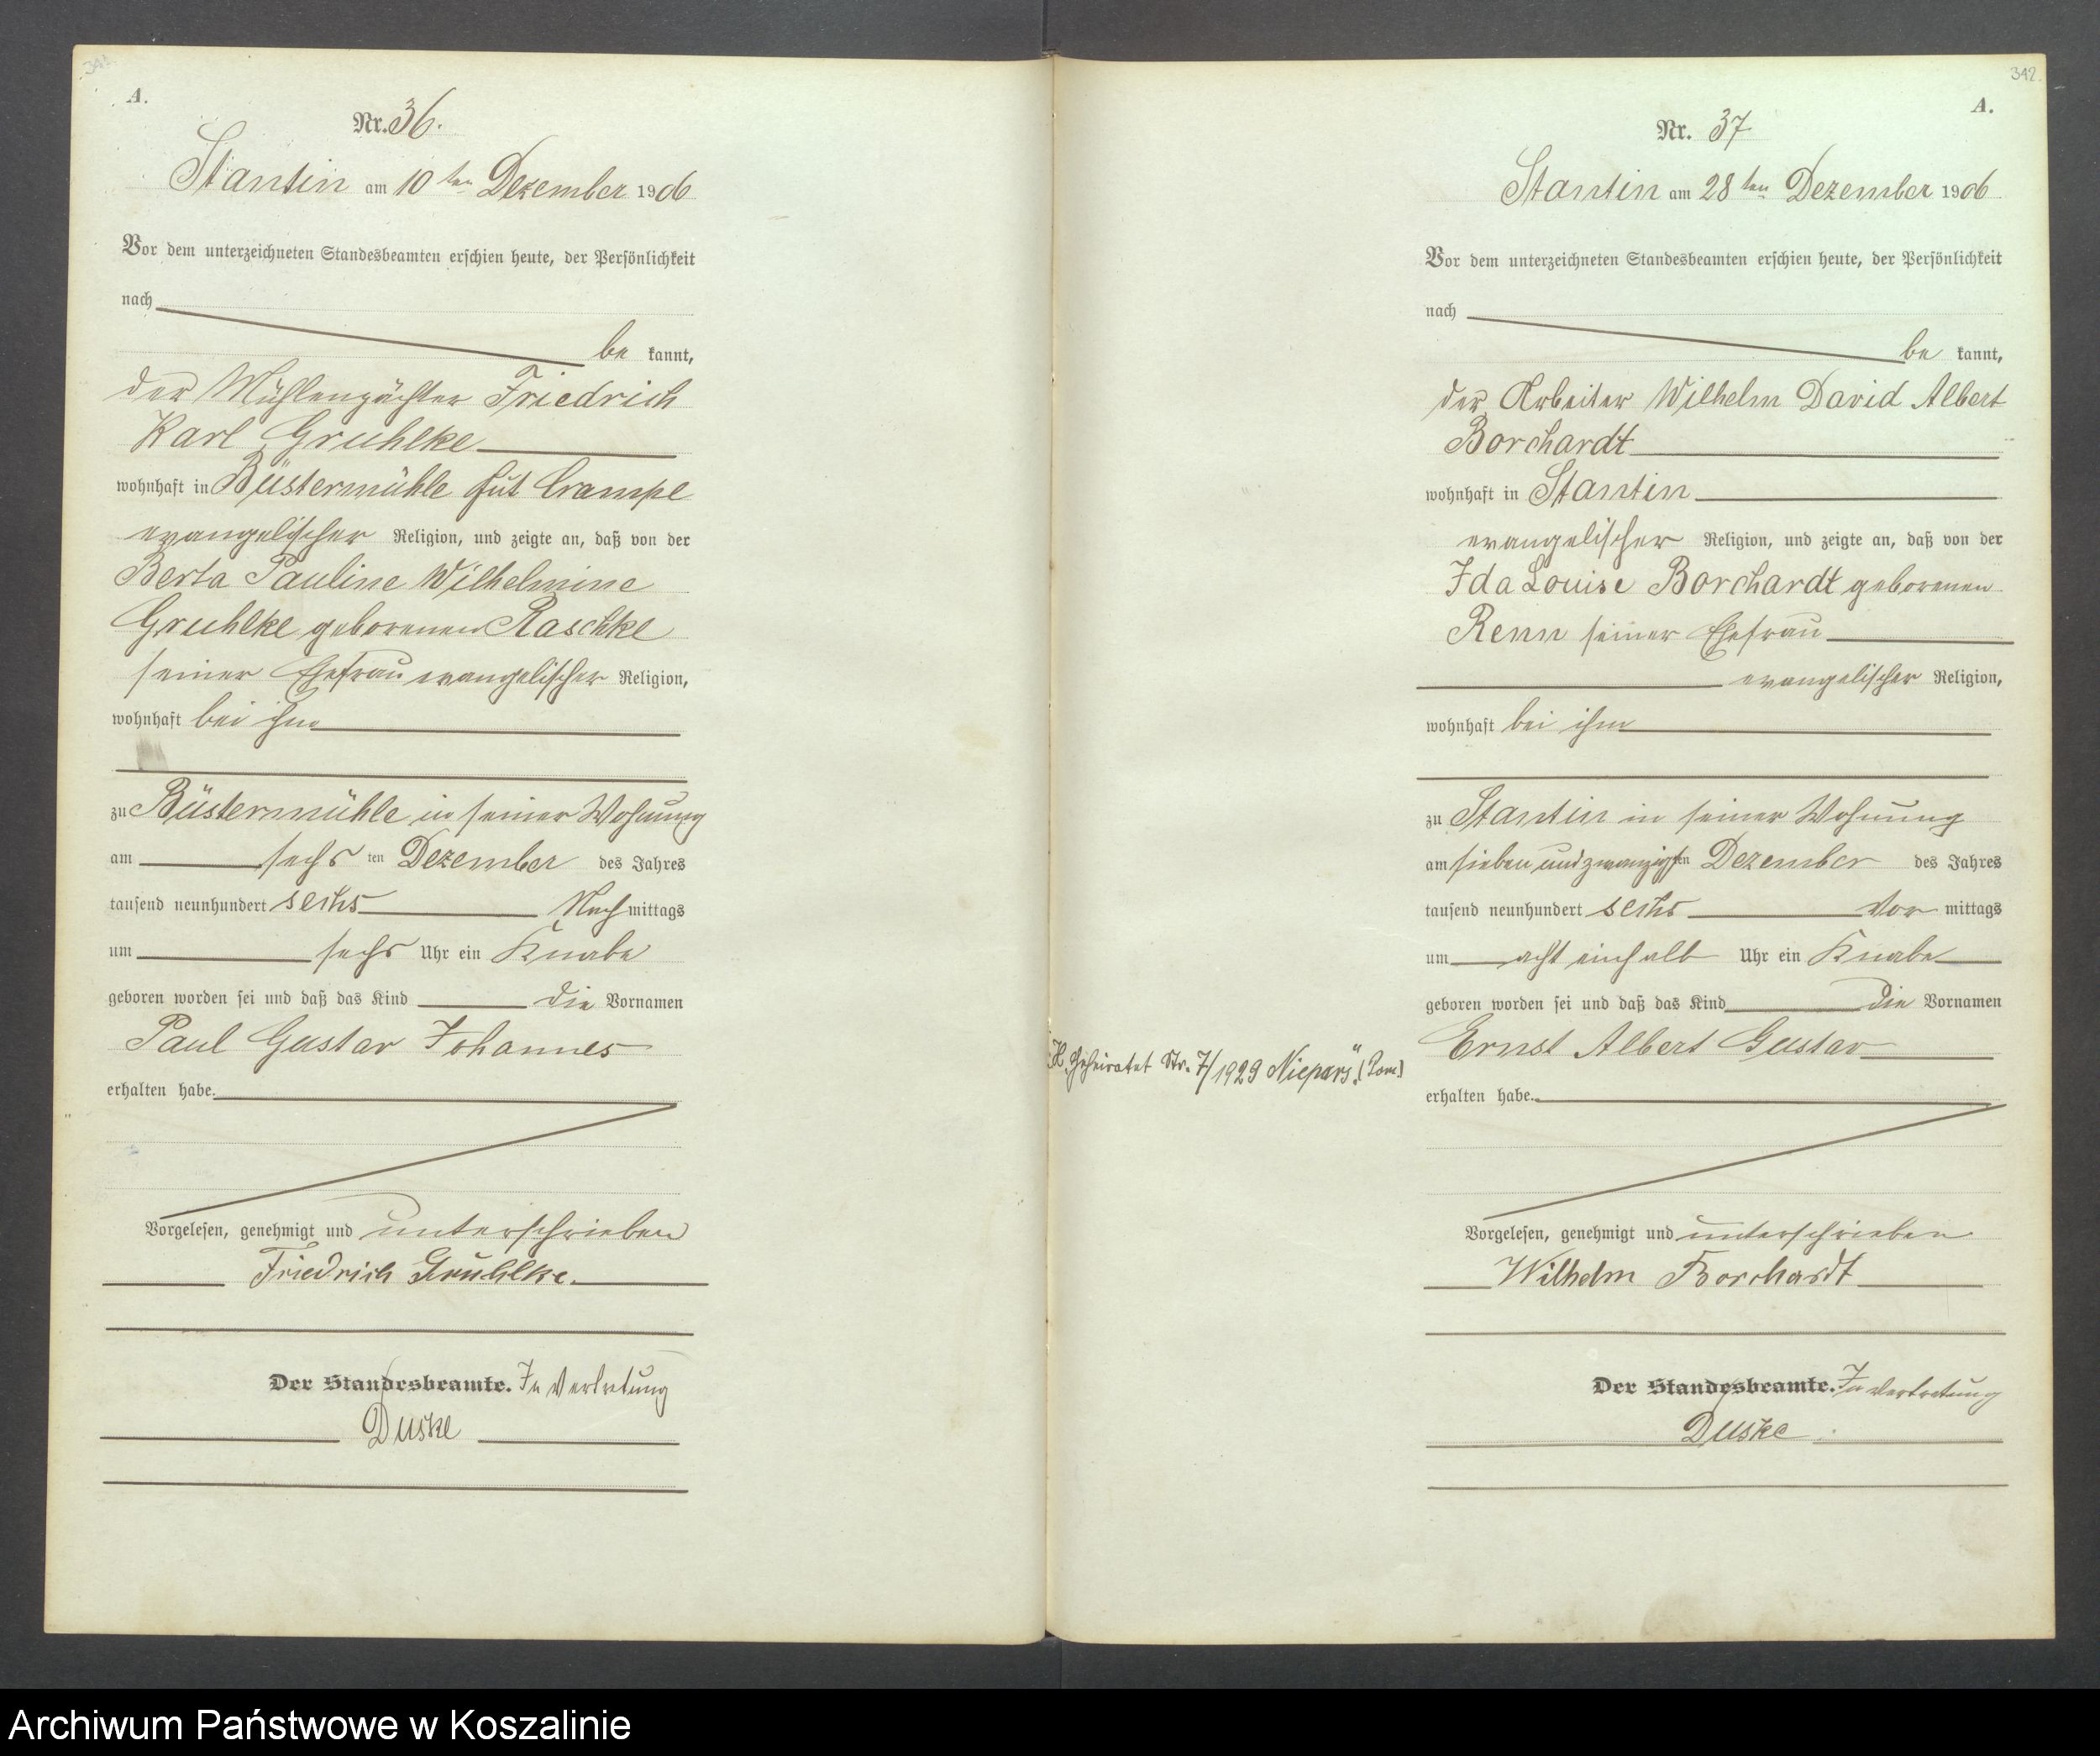 341.
A.
Nr. 36.
Stantin am 10 ten Dezember 1906
Vor dem unterzeichneten Standesbeamten erschien heute, der Persönlichkeit
nach
be kannt,
der Mühlenpächter Friedrich
Karl Gruhlke
wohnhaft in Büstermühle Gut Crampe
evangelischer Religion, und zeigte an, daß von der
Berta Pauline Wilhelmine
Gruhlke geborenen Raschke
seiner Ehefrau evangelischer Religion,
wohnhaft bei ihm
zu Büstermühle in seiner Wohnung
am sechs ten Dezember des Jahres
tausend neunhundert sechs Nach mittags
um sechs Uhr ein Knabe
geboren worden sei und daß das Kind die Vornamen
Paul Gustav Johannes
erhalten habe.
Vorgelesen, genehmigt und unterschrieben
Friedrich Gruhlke.
Der Standesbeamte. In Vertretung
Duske
342.
A.
Nr. 37
Stantin am 28 ten Dezember 1906
Vor dem unterzeichneten Standesbeamten erschien heute, der Persönlichkeit
nach
be kannt,
der Arbeiter Wilhelm David Albert
Borchardt
wohnhaft in Stantin
evangelischer Religion, und zeigte an, daß von der
Ida Louise Borchardt geborenen
Renn seiner Ehefrau
evangelischer Religion,
wohnhaft bei ihm
zu Stantin in seiner Wohnung
am siebenundzwanzigsten Dezember des Jahres
tausend neunhundert sechs Vor mittags
um acht einhalb Uhr ein Knabe
geboren worden sei und daß das Kind die Vornamen
Ernst Albert Gustav
erhalten habe.
geheiratet Nr. 7/1929 Niepars (Pom)
Vorgelesen, genehmigt und unterschrieben
Wilhelm Borchardt
Der Standesbeamte. In Vertretung
Duske
Archiwum Państwowe w Koszalinie